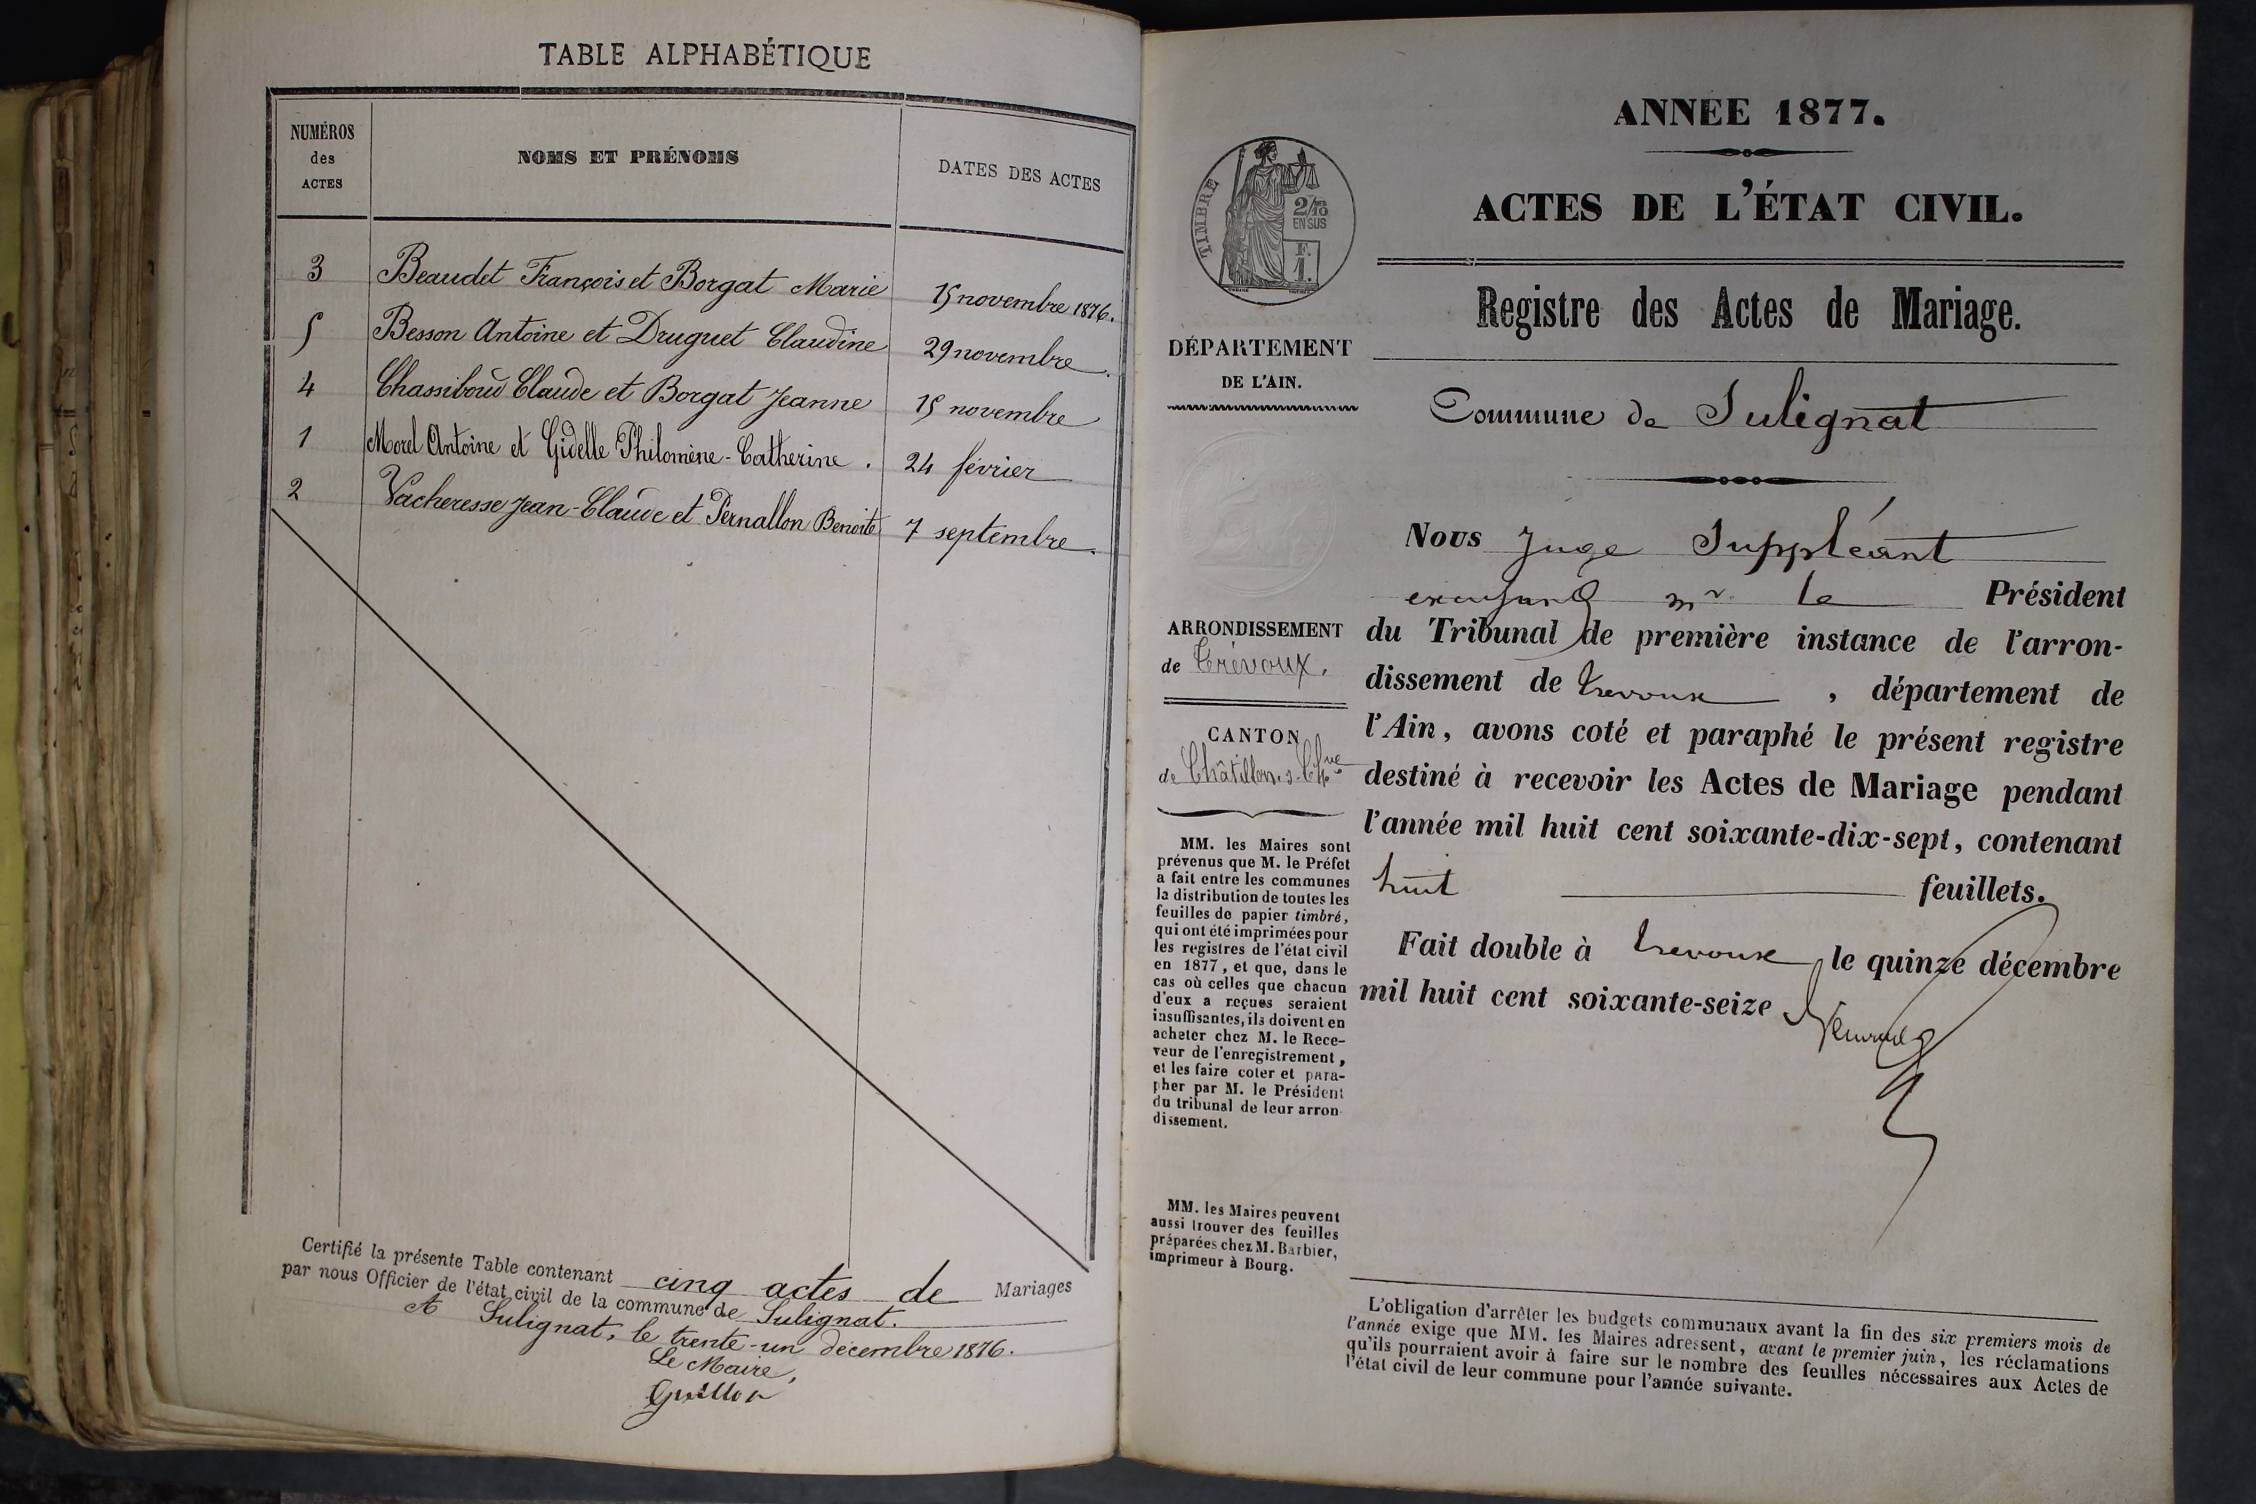 TABLE ALPHABÉTIQUE
NUMÉROS
des
ACTES
NOMS ET PRÉNOMS
DATES DES ACTES
3 Beaudet François et Borgat Marie 15 novembre 1876.
5 Besson Antoine et Druguet Claudine 29 novembre.
4 Chassiboud Claude et Borgat Jeanne 15 novembre
1 Morel Antoine et Gidelle Philomène-Catherine. 24 février
2 Vacheresse Jean-Claude et Pernallon Benoite 7 septembre.
Certifié la présente Table contenant cinq actes de Mariages
par nous Officier de l'état civil de la commune de Sulignat.
A Sulignat, le trente-un décembre 1876.
Le Maire,
ANNÉE 1877.
ACTES DE L'ÉTAT CIVIL.
TIMBRE
2/10
EN SUS
F.
1.
Registre des Actes de Mariage.
DÉPARTEMENT
DE L'AIN.
Commune de Sulignat
ARRONDISSEMENT
de Trévoux.
CANTON
de Châtillon-s-Chne
MM. les Maires sont
prévenus que M. le Préfet
a fait entre les communes
la distribution de toutes les
feuilles de papier timbré,
qui ont été imprimées pour
les registres de l'état civil
en 1877, et que, dans le
cas où celles que chacun
d'eux a reçues seraient
insuffisantes, ils doivent en
acheter chez M. le Rece-
veur de l'enregistrement,
et les faire coter et para-
pher par M. le Président
du tribunal de leur arron-
dissement.
MM. les Maires peuvent
aussi trouver des feuilles
préparées chez M. Barbier,
imprimeur à Bourg.
Nous Juge Suppléant
mr le Président
du Tribunal de première instance de l'arron-
dissement de Trevoux, département de
l'Ain, avons coté et paraphé le présent registre
destiné à recevoir les Actes de Mariage pendant
l'année mil huit cent soixante-dix-sept, contenant
huit feuillets.
Fait double à Trevoux le quinze décembre
mil huit cent soixante-seize
L'obligation d'arrêter les budgets communaux avant la fin des six premiers mois de
l'année exige que MM. les Maires adressent, avant le premier juin, les réclamations
qu'ils pourraient avoir à faire sur le nombre des feuilles nécessaires aux Actes de
l'état civil de leur commune pour l'année suivante.